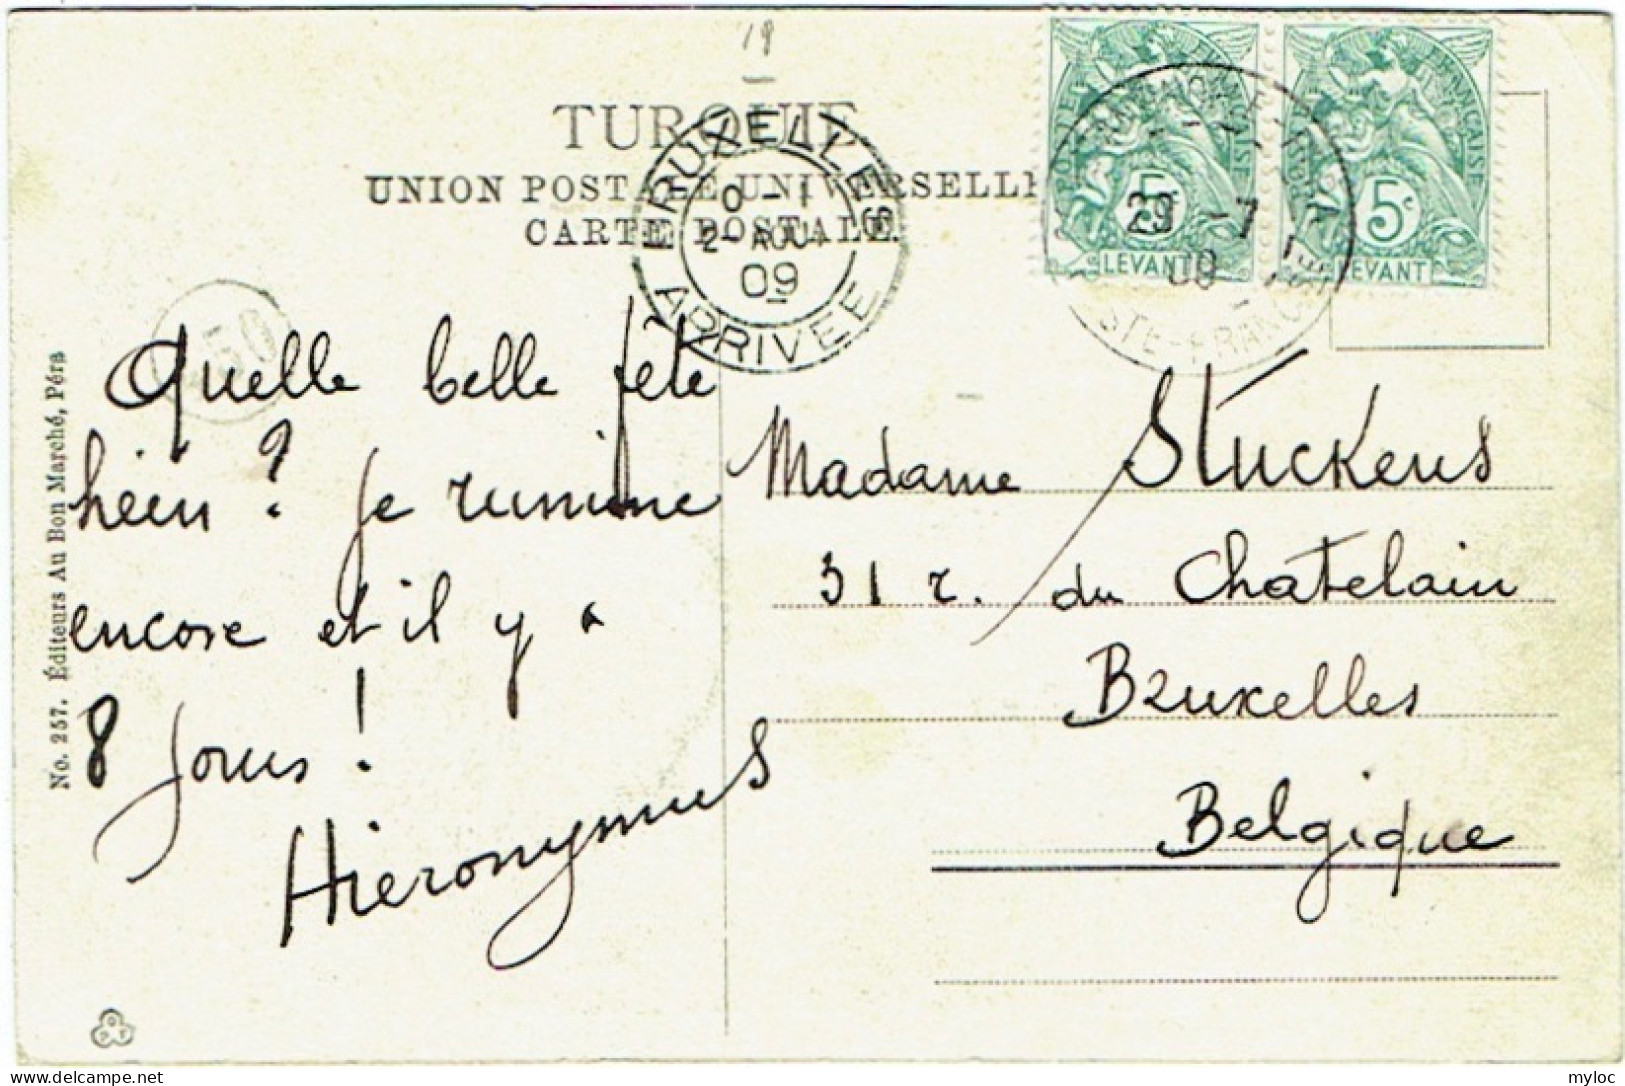 18
TURQUIE
UNION POSTALE UNIVERSELLE
CARTE POSTALE.
BRUXELLES
2- AOU
09
ARRIVEE
5c
LEVANT
5c
LEVANT
29 -7
09
POSTE-FRANÇ
50
Quelle belle fête
hein ? je rumine
encore et il y a
8 jours !
Hieronymus
Madame Stuckens
31 r. du Chatelain
Bruxelles
Belgique
No. 257. Éditeurs Au Bon Marché, Péra
myloc
delcampe.net